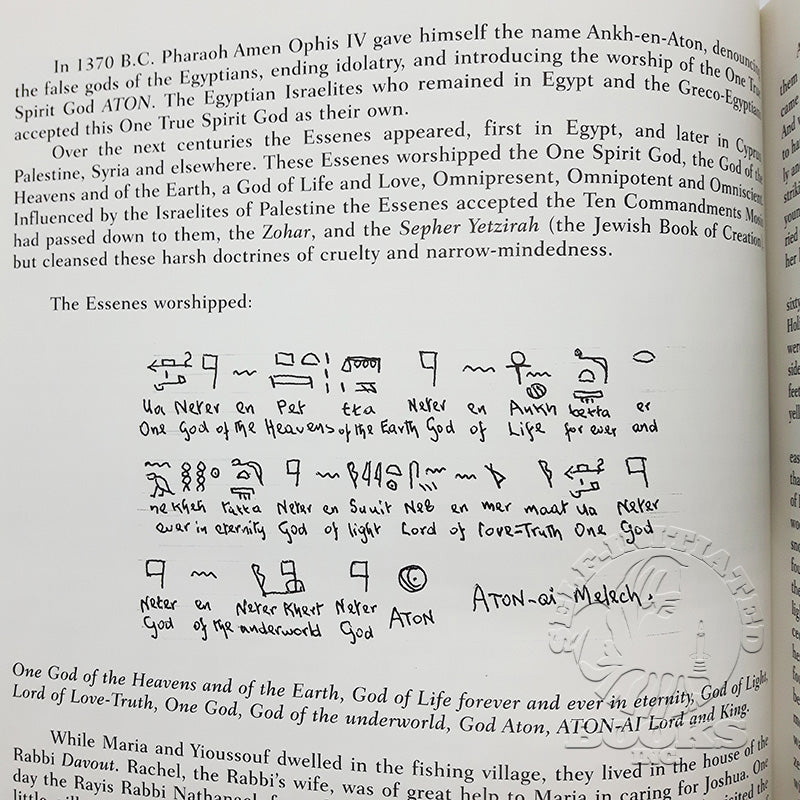 In 1370 B.C. Pharaoh Amen Ophis IV gave himself the name Ankh-en-Aton, denouncing
the false gods of the Egyptians, ending idolatry, and introducing the worship of the One True
Spirit God ATON. The Egyptian Israelites who remained in Egypt and the Greco-Egyptians
accepted this One True Spirit God as their own.
Over the next centuries the Essenes appeared, first in Egypt, and later in Cyprus
Palestine, Syria and elsewhere. These Essenes worshipped the One Spirit God, the God of the
Heavens and of the Earth, a God of Life and Love, Omnipresent, Omnipotent and Omniscient.
Influenced by the Israelites of Palestine the Essenes accepted the Ten Commandments
had passed down to them, the Zohar, and the Sepher Yetzirah (the Jewish Book of Creation)
but cleansed these harsh doctrines of cruelty and narrow-mindedness.
The Essenes worshipped:
Ua Neter en Pet tta Neter en Ankh tetta er
One God of the Heavens of the Earth God of Life for ever and
neheh tatta Neter en Suut Neb en mer maat Ua Neter
ever in eternity God of light Lord of Love=Truth One God
Neter en Neter Khert Neter
God of the underworld God ATON
ATON-ai Melech.
One God of the Heavens and of the Earth, God of Life forever and ever in eternity, God of Light,
Lord of Love-Truth, One God, God of the underworld, God Aton, ATON-AI Lord and King.
While Maria and Yioussouf dwelled in the fishing village, they lived in the house of the
Rabbi Davout. Rachel, the Rabbi's wife, was of great help to Maria in caring for Joshua. One
day the Rayis Rabbi
SELF-INITIATED
BOOKS
INC